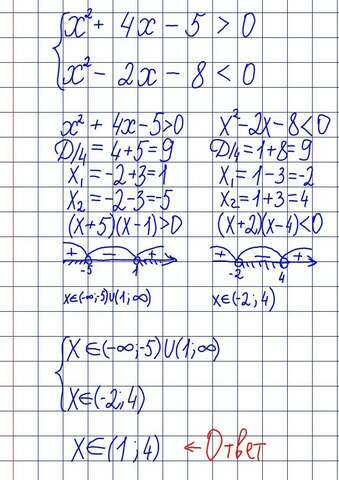 x² + 4x - 5 > 0
x² - 2x - 8 < 0
x² + 4x - 5 > 0
D/4 = 4 + 5 = 9
x₁ = -2 + 3 = 1
x₂ = -2 - 3 = -5
(x + 5)(x - 1) > 0
+ - +
-5 1
x∈(-∞;-5)∪(1;∞)
x² - 2x - 8 < 0
D/4 = 1 + 8 = 9
x₁ = 1 - 3 = -2
x₂ = 1 + 3 = 4
(x + 2)(x - 4) < 0
+ - +
-2 4
x∈(-2;4)
x∈(-∞;-5)∪(1;∞)
x∈(-2;4)
x∈(1;4) ← Ответ